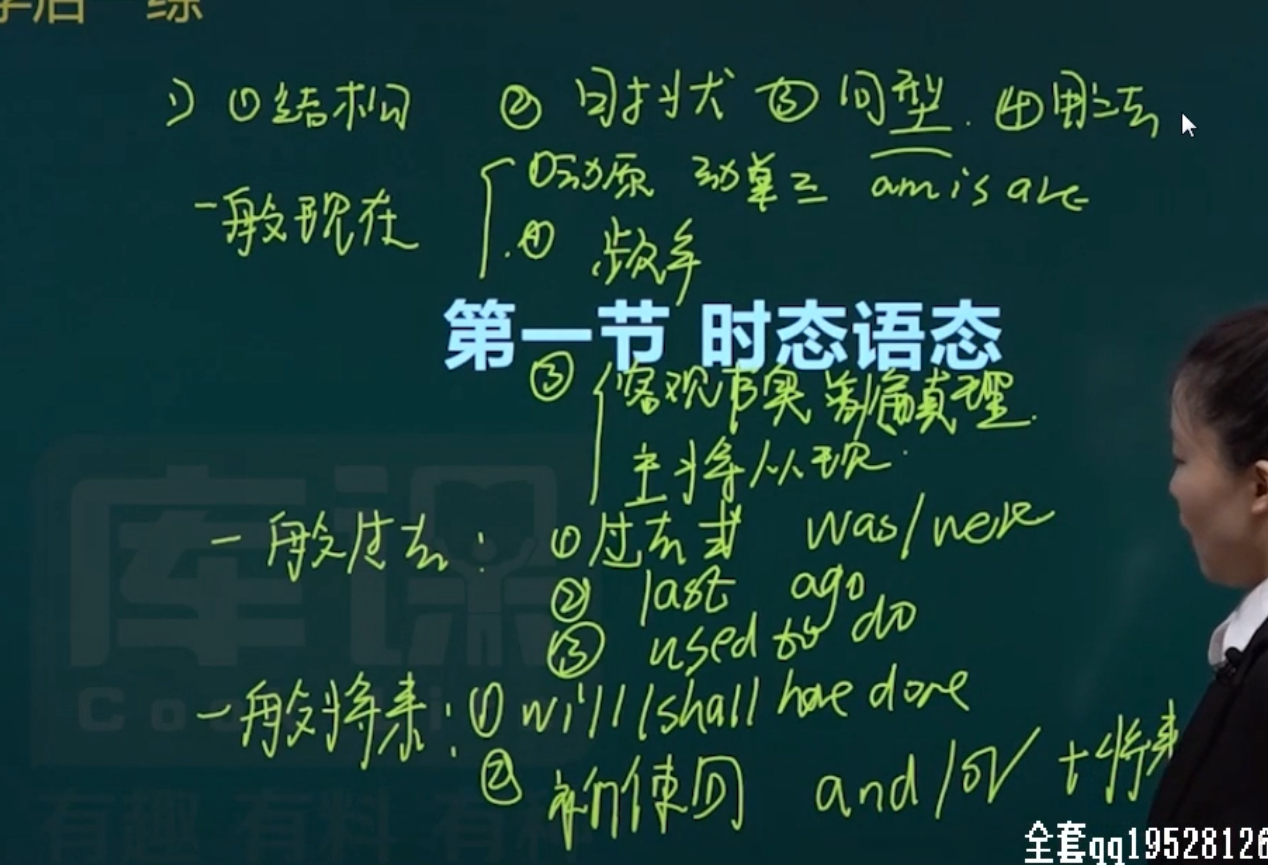 学后一练
1) ①结构 ②时状 ③句型. ④用法
一般现在 ①动原 动单三 am is are
④ 频率
第一节 时态语态
③ 客观事实 普遍真理.
主将从现.
一般过去: ①过去式 was/were
② last ago
③ used to do
一般将来: ① will/shall have done
② 祈使句 and/or +将来
库课
有趣 有料 有
全套qq19528126